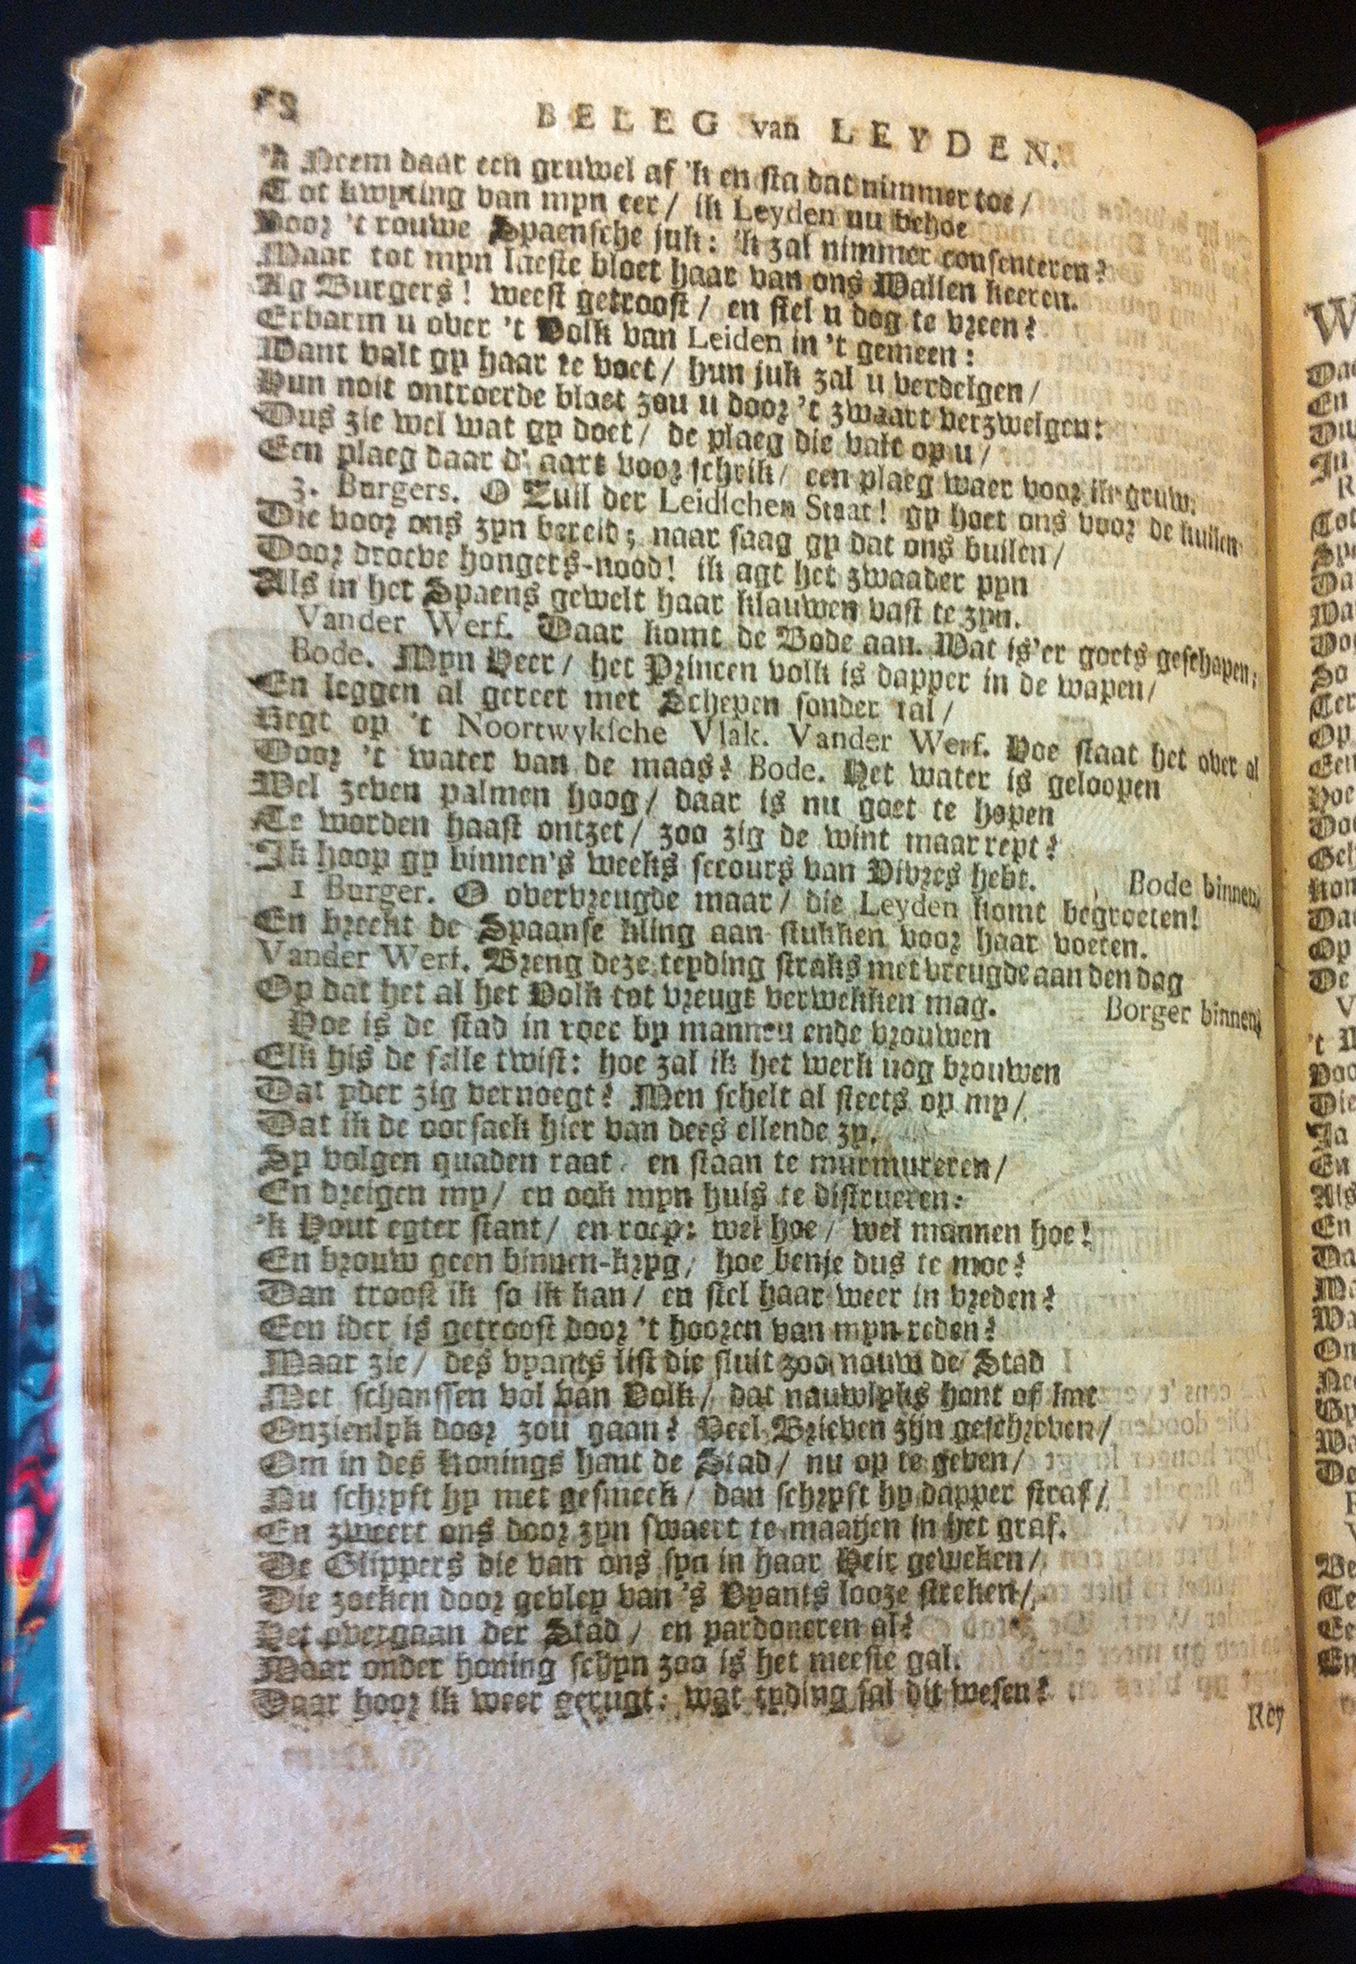 BELEG van LEYDEN.
'k Neem daar een gruwel af 'k en sta dat nimmer toe /
Tot kwyting van myn eer / ik Leyden nu behoe
Voor 't rouwe Spaensche juk: 'k zal nimmer consenteren?
Maar tot myn laeste bloet haar van ons Wallen keeren.
Ag Burgers! weest getroost / en stel u dog te vreen?
Erbarm u over 't Volk van Leiden in 't gemeen:
Want valt gy haar te voet / hun juk zal u verdelgen /
Hun noit ontroerde bloet zou u door 't zwaart verzwelgen:
Dus zie wel wat gy doet / de plaeg die valt op u /
Een plaeg daar d' aart voor schrik / een plaeg waer voor ik gruw.
3. Burgers. O Zuil der Leidschen Staat! gy hoet ons voor de kuilen
Die voor ons zyn bereid; naar saag gy dat ons builen /
Door droeve hongers-nood! ik agt het zwaader pyn
Als in het Spaens gewelt haar klauwen vast te zyn.
Vander Werf. Daar komt de Bode aan. Wat is'er goets geschapen:
Bode. Myn Heer / het Princen volk is dapper in de wapen /
En leggen al gereet met Schepen sonder tal /
Regt op 't Noortwyksche Vlak. Vander Werf. Hoe staat het over al
Door 't water van de maas? Bode. Het water is geloopen
Wel zeven palmen hoog / daar is nu goet te hopen
Te worden haast ontzet / zoo zig de wint maar rept?
Ik hoop gy binnen's weeks secours van Vivres hebt. Bode binnen.
1 Burger. O overvreugde maar / die Leyden komt begroeten!
En breekt de Spaanse kling aan stukken voor haar voeten.
Vander Werf. Breng deze teyding straks met vreugde aan den dag
Op dat het al het Volk tot vreugt verwekken mag. Borger binnen.
Hoe is de stad in roer by mannen ende vrouwen
Elk his de felle twist: hoe zal ik het werk nog brouwen
Dat yder zig vernoegt? Men schelt al steets op my /
Dat ik de oorsaek hier van dees ellende zy.
Sy volgen quaden raat en staan te murmureren /
En dreigen my / en ook myn huis te distrueren:
'k Hout egter stant / en roep: wel hoe / wel mannen hoe!
En brouw geen binnen-kryg / hoe benje dus te moe?
Dan troost ik so ik kan / en stel haar weer in vreden?
Een ider is getroost door 't hooren van myn reden?
Maar zie / des vyants list die sluit zoo nauw de Stad
Met schanssen vol van Volk / dat nauwlyks hont of kat
Onzienlyk door zou gaan? Veel Brieven zijn geschreven /
Om in des Konings hant de Stad / nu op te geven /
Nu schryft hy met gesmeek / dan schryft hy dapper straf /
En zweert ons door zyn swaert te maaijen in het graf.
De Glippers die van ons syn in haar Heir geweken /
Die zoeken door gevley van 's Vyants looze streken /
Het overgaan der Stad / en pardoneren al?
Maar onder honing schyn zoo is het meeste gal.
Daar hoor ik weer gerugt: wat tyding sal dit wesen?
Rey